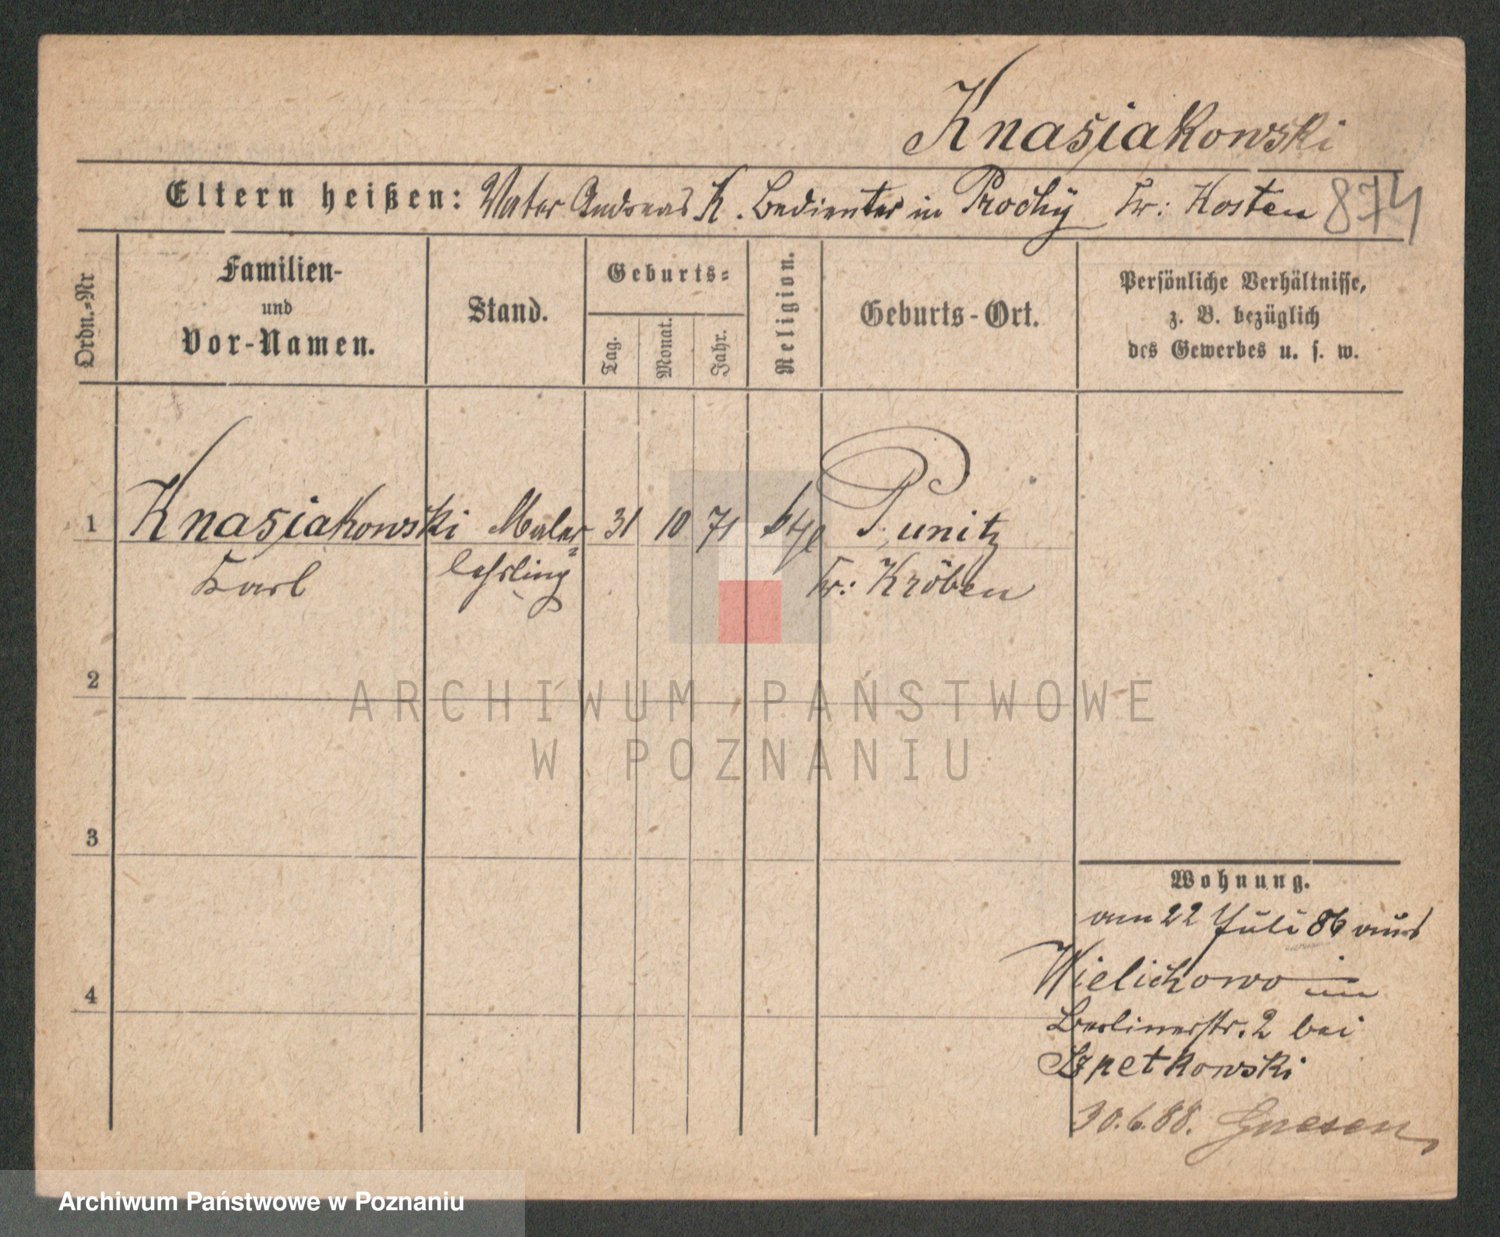 Knasiakowski
Eltern heißen: Vater Andreas K. Bedienter in Prochy Kr: Kosten 874
Ordn.-Nr
Familien-
und
Vor-Namen.
Stand.
Geburts-
Tag.
Monat.
Jahr.
Religion.
Geburts-Ort.
Persönliche Verhältnisse,
z. B. bezüglich
des Gewerbes u. s. w.
1 Knasiakowski Maler- 31 10 71 Punitz
Karl lehrling Kr: Kröben
2
ARCHIWUM PAŃSTWOWE
W POZNANIU
3
Wohnung.
am 22 Juli 86 aus
Wielichowo
4
Berlinerstr. 2 bei
Szpetkowski
30.6.88. Gnesen
Archiwum Państwowe w Poznaniu